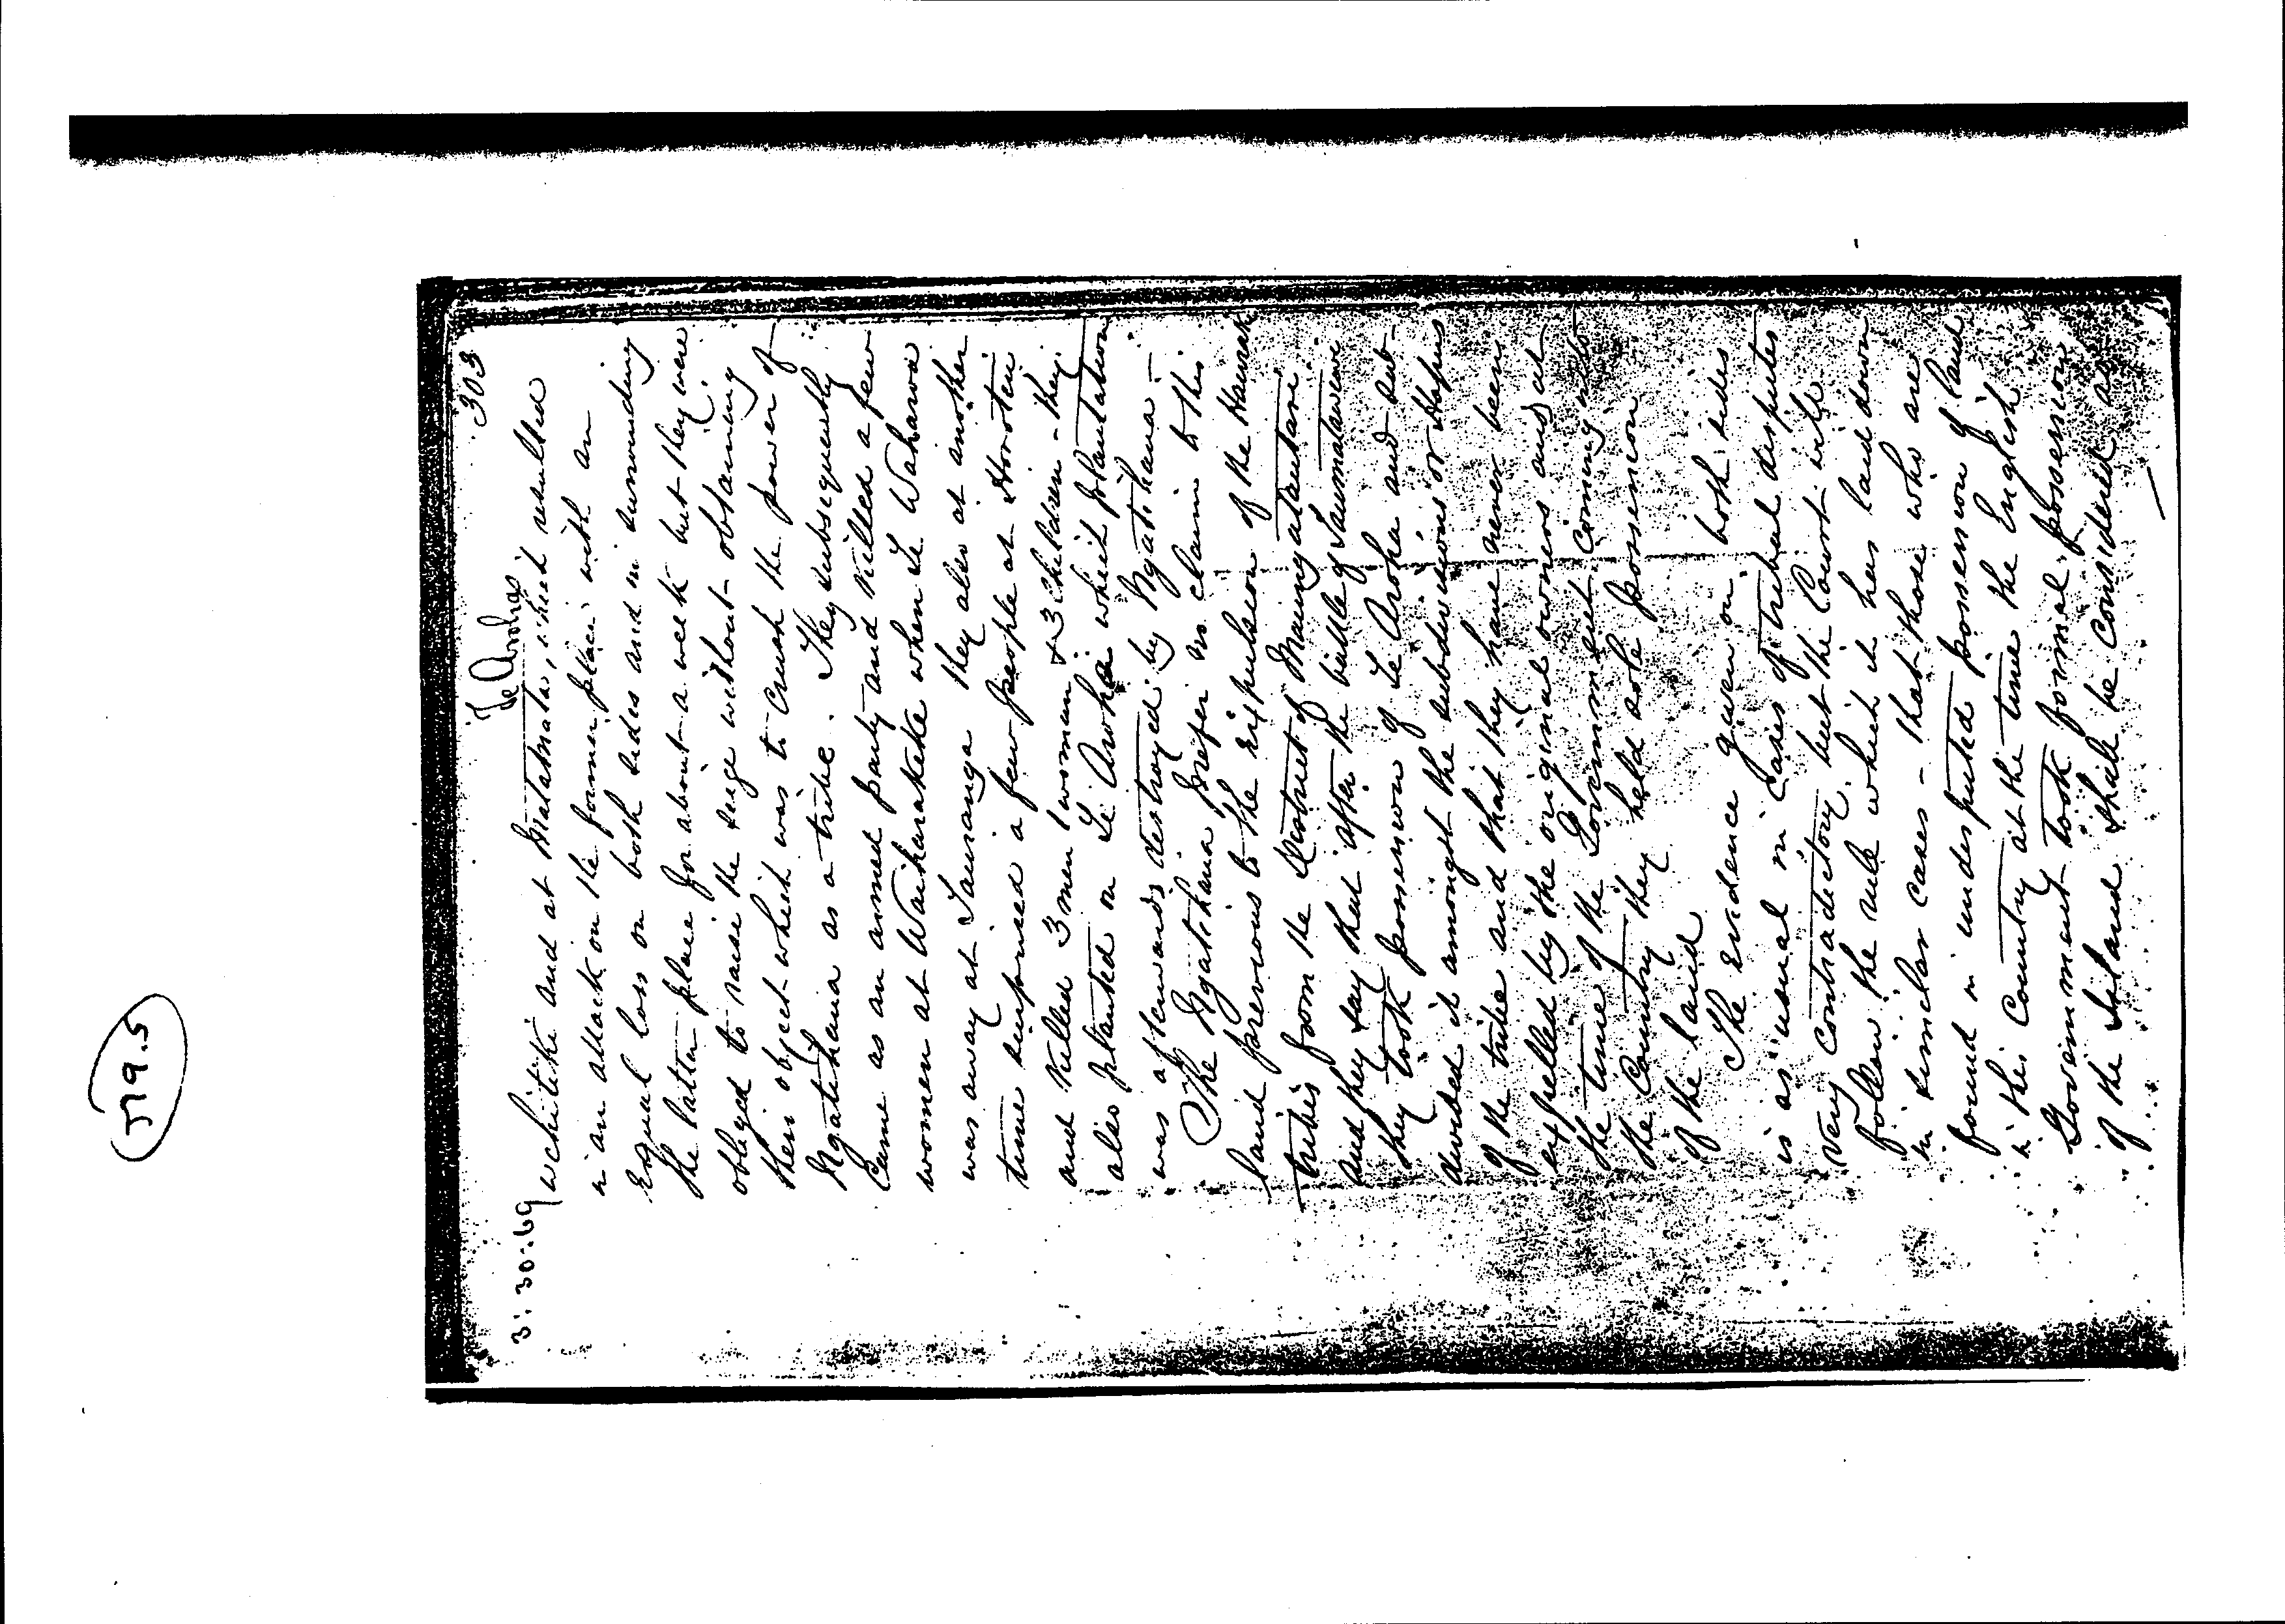 J79.5
303
3.30.69
Te Aroha
Wehitike and at Matamata, which resulted
in an attack on the former place with an
Equal loss on both sides and in surrounding
the latter place for about a week but they were
obliged to raise the siege without obtaining
their object which was to crush the power of
Ngatihaua as a tribe. They subsequently
Came as an armed party and killed a few
women at Waiharakeke when Te Waharoa
was away at Tauranga they also at another
time surprised a few people at Horotiu
and killed 3 men 1 woman & 3 children - they
also planted on Te Aroha which plantation
was afterwards destroyed by Ngatihaua -
The Ngatihaua prefer no claim to this
land previous to the expulsion of the Hauraki
tribes from the District of Maungatautari
and they say that after the battle of Taumatawiwi
they took possession of Te Aroha and sub-
divided it amongst the subdivisions or Hapus
of the tribe and that they have never been
expelled by the original owners and at
the time of the Government coming into
the Country they held sole possession
of the land
The evidence given on both sides
is as usual in cases of tribal disputes
very contradictory but the Court will
follow the rule which it has laid down
in similar cases - that those who are
found in undisputed possession of land
in this Country at the time the English
Government took formal possession
of the Island shall be considered as